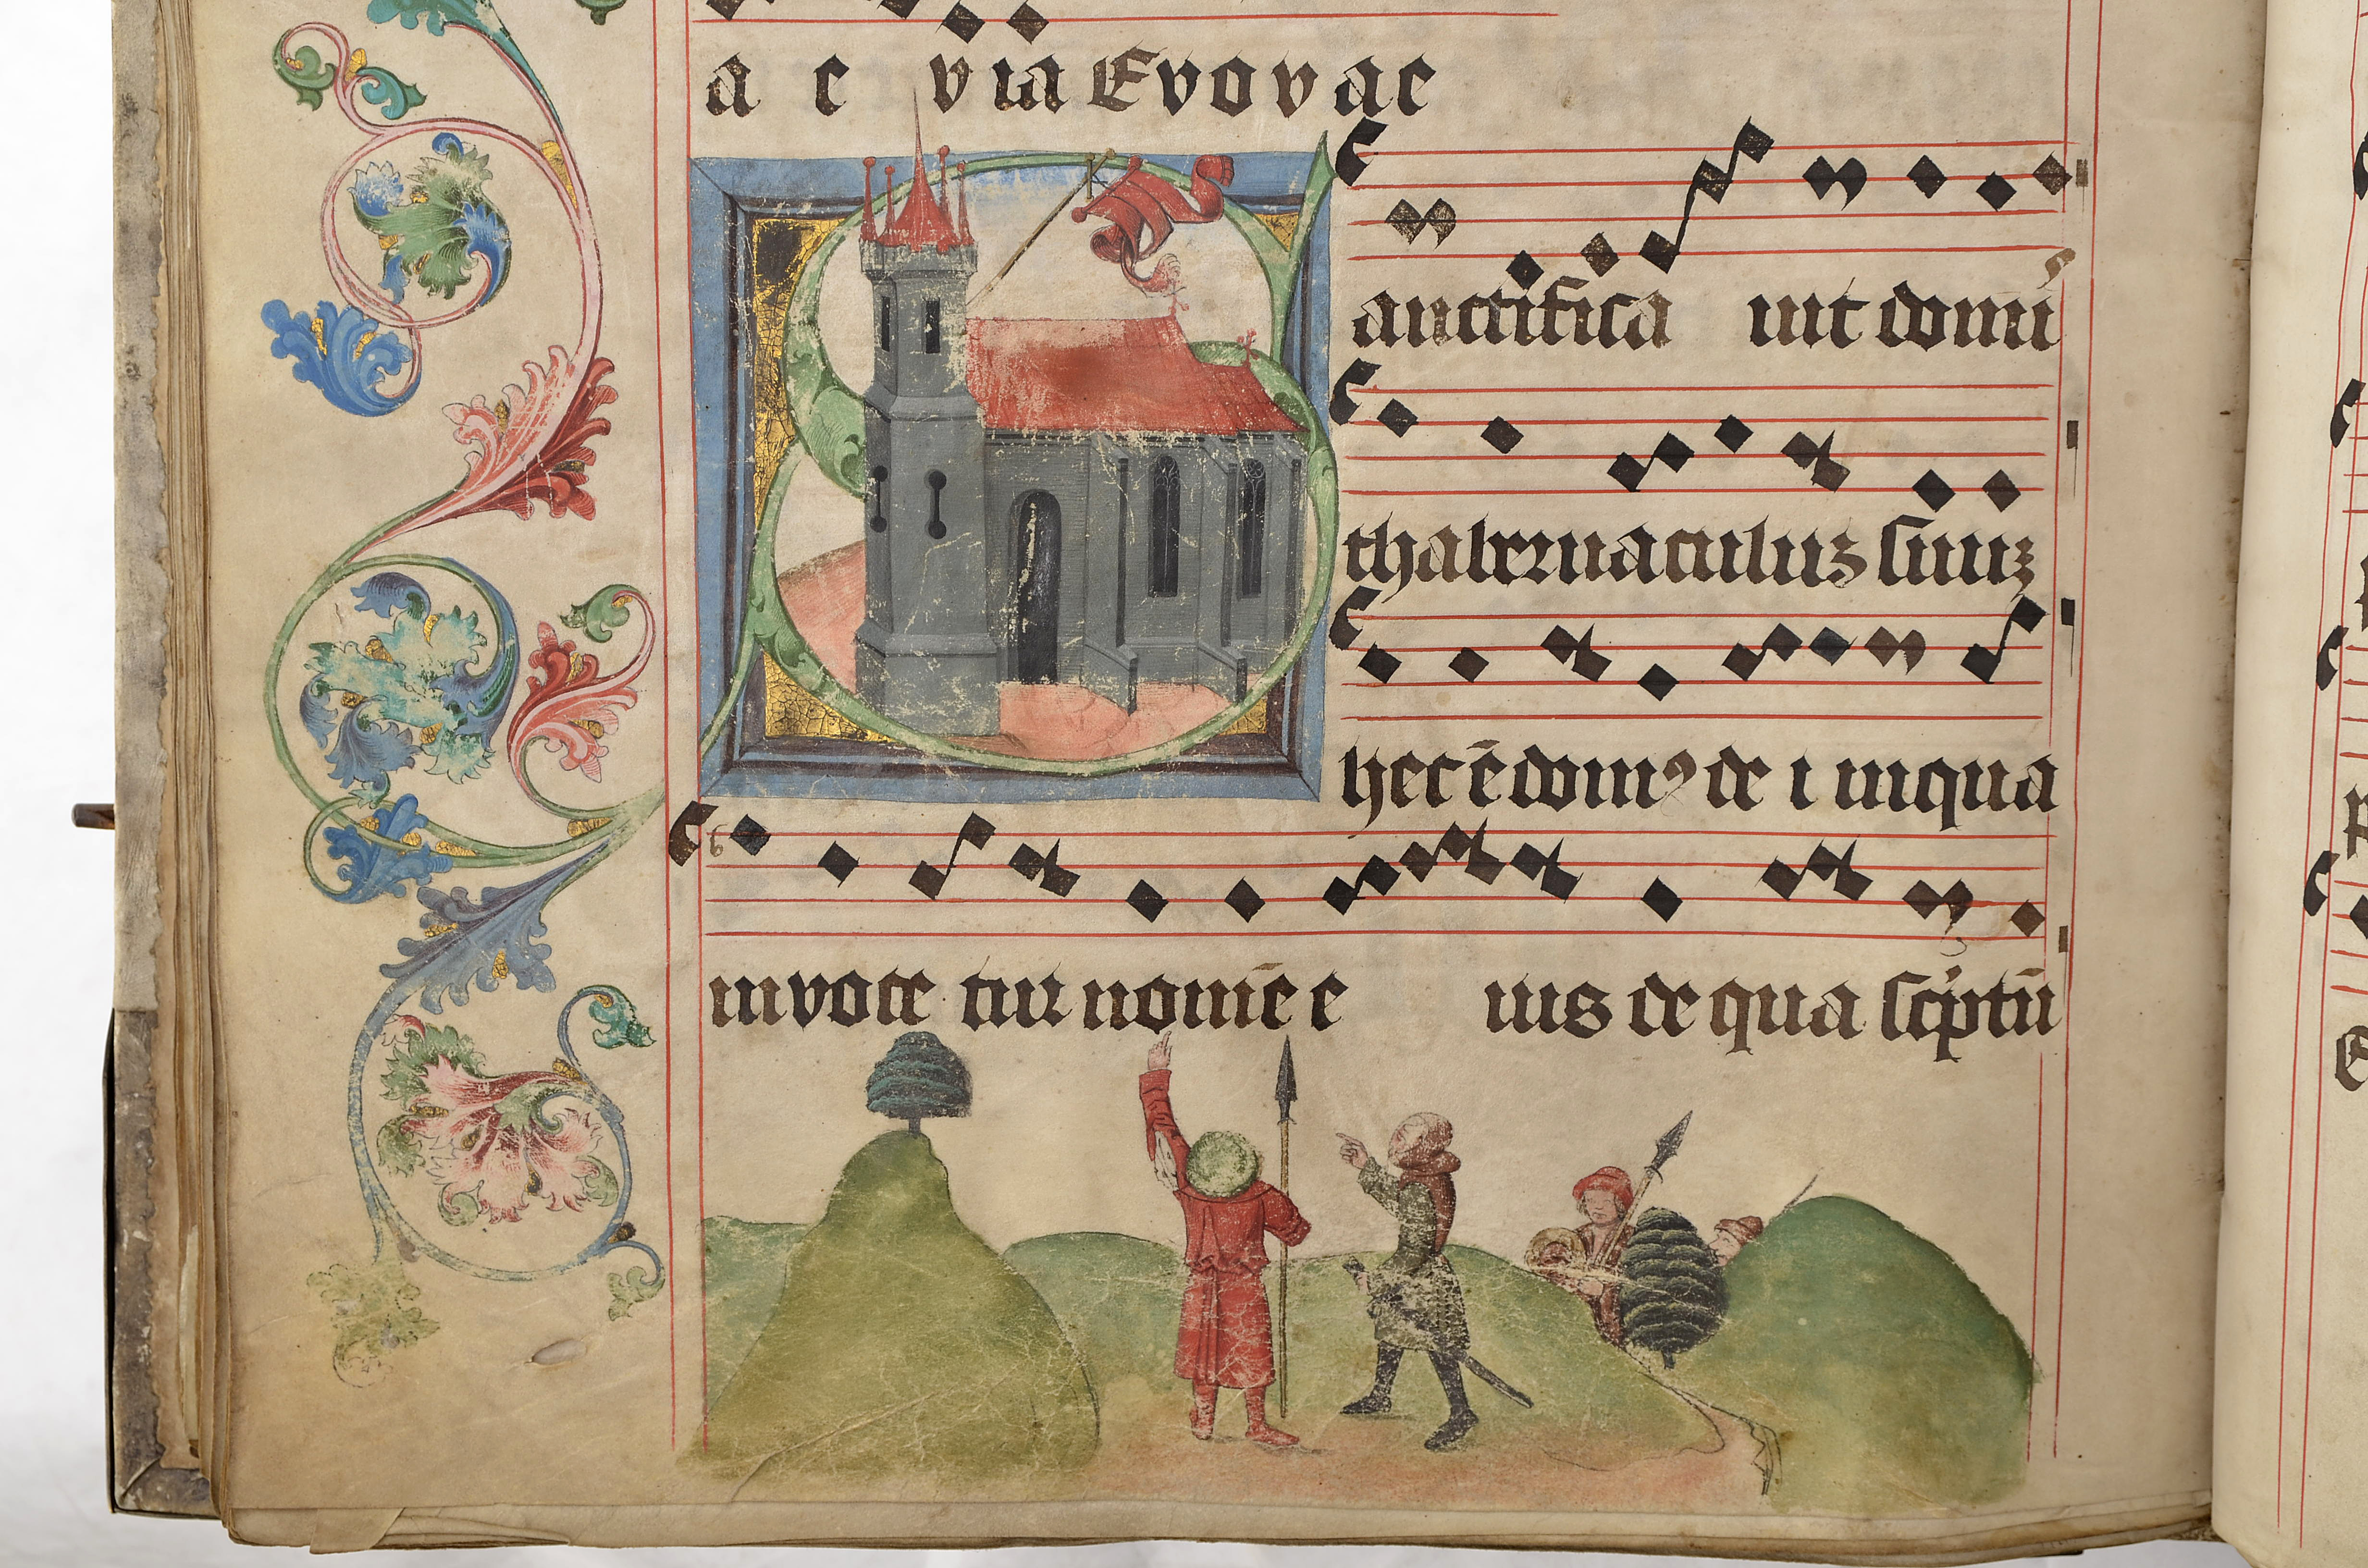 a e via Evovae
Sanctifica uit domi
thabernaculuz suuz
hec ē domꝰ de i in qua
invoce tur nomē e ius de qua sc̍ptū